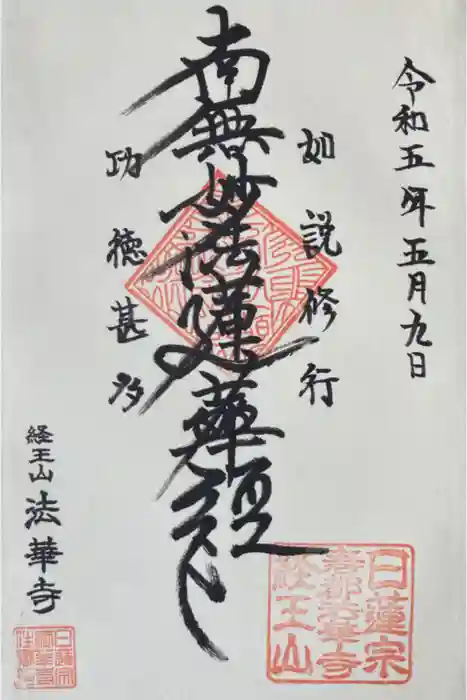 令和五年五月九日
如説修行
南無妙法蓮華経
功徳甚多
経王山
法華寺
日蓮宗
経王山